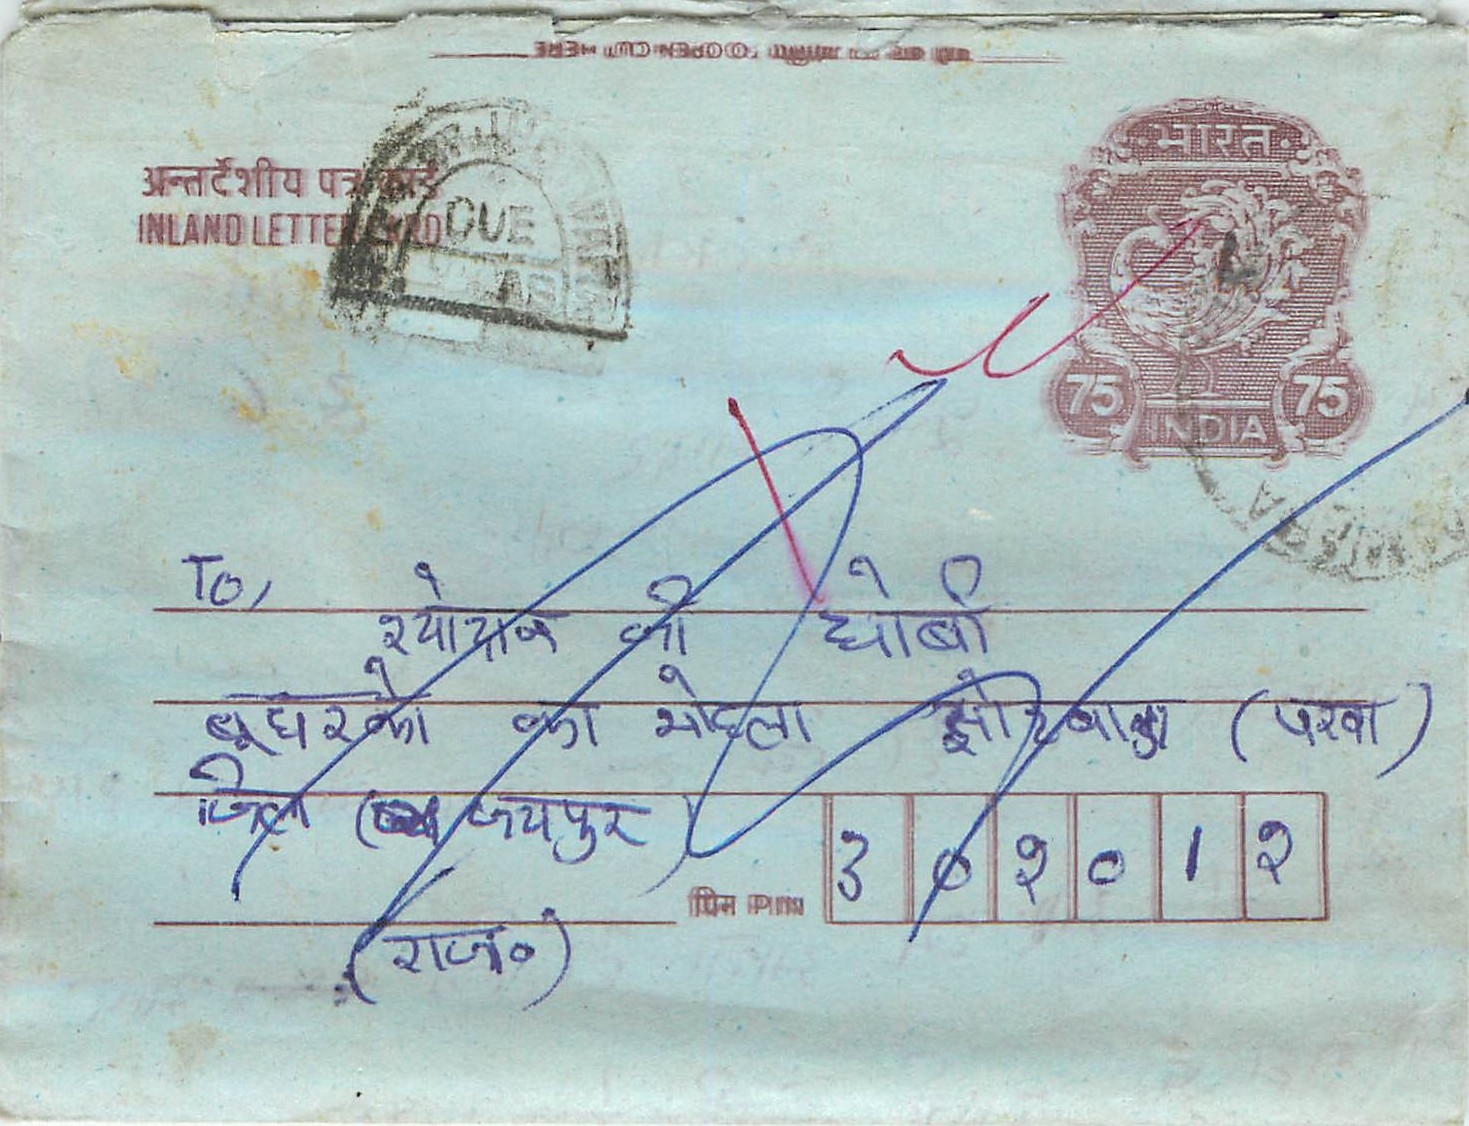 TO OPEN CUT HERE
अन्तर्देशीय पत्र कार्ड
INLAND LETTER CARD
DUE
भारत
75 75
INDIA
To,
जी धोबी
का मोहला झोटवाड़ा (
जिला ( जयपुर )
पिन PIN 3 0 २ 0 1 २
(राज०)